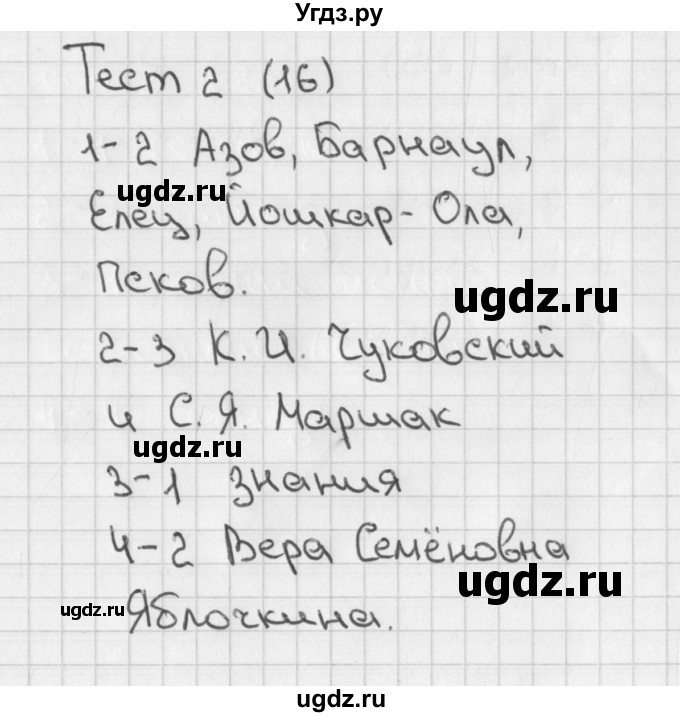 Угдз.ру
Тест 2 (16)
1-2 Азов, Барнаул,
ugdz.ru
Елец, Йошкар-Ола,
Псков.
ugdz.ru
2-3 К. И. Чуковский
и С. Я. Маршак
ugdz.ru
3-1 знания
4-2 Вера Семёновна
ugdz.ru
ugdz.ru
Яблочкина.
ugdz.ru